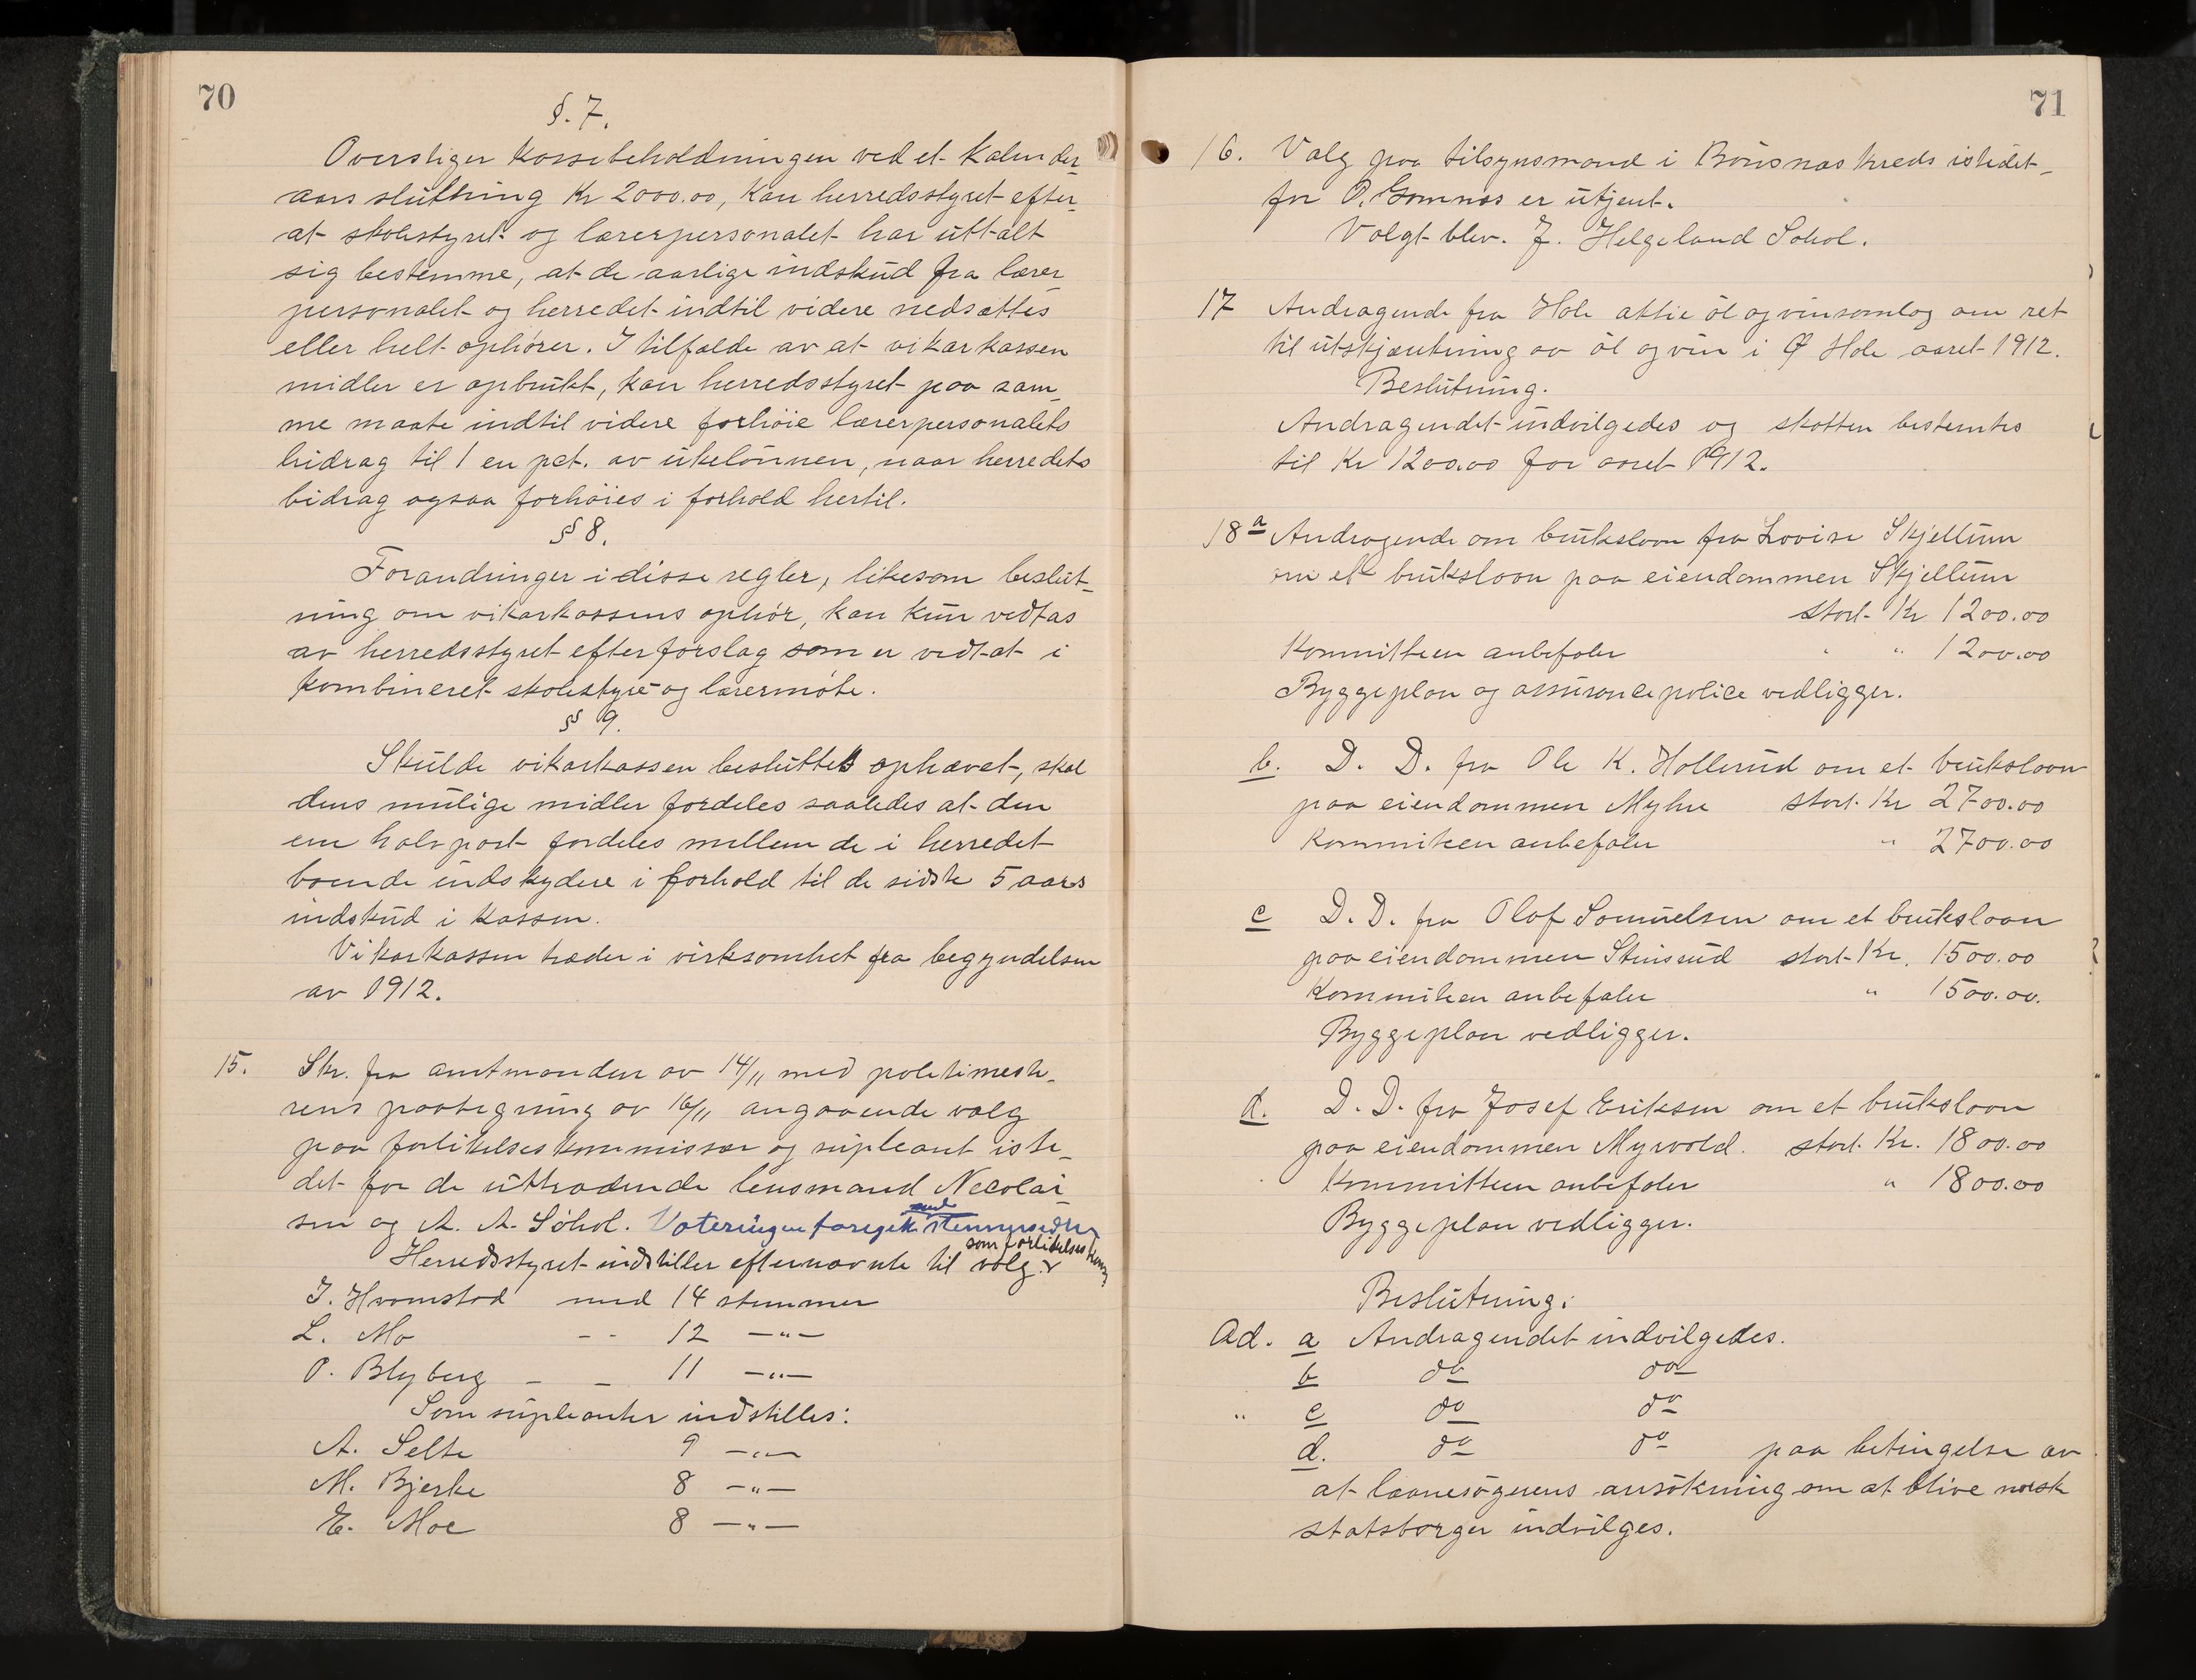 70
§. 7.
Overstiger kassebeholdningen ved et kalender-
aars slutning Kr 2000.00, kan herredsstyret efter-
at skolestyret og lærerpersonalet har uttalt
sig bestemme, at de aarlige indskud fra lærer-
personalet og herredet indtil videre nedsættes
eller helt ophører. I tilfælde av at vikarkassen
midler er opbrukt, kan herredsstyret paa sam-
me maate indtil videre forhöie lærerpersonalets
bidrag til 1 en pct. av ukelönnen, naar herredets
bidrag ogsaa forhöies i forhold hertil.
§ 8.
Forandringer i disse regler, likesom beslut-
ning om vikarkassens ophör, kan kun vedtas
av herredsstyret efter forslag som er vedtat i
kombineret skolestyre og lærermöte.
§ 9.
Skulde vikarkassen besluttes ophævet, skal
dens mulige midler fordeles saaledes at den
ene halvpart fordeles mellem de i herredet
boende indskydere i forhold til de sidste 5 aars
indskud i kassen.
Vikarkassen træder i virksomhet fra begyndelsen
av 1912.
15. Skr. fra amtmanden av 14/11 med politimeste-
rens paategning av 16/11 angaaende valg
paa forlikelseskommissær og supleant iste-
det for de uttrædende lensmand Necolai-
sen og A. A. Söhol. Voteringen foregik med stemmesedler
Herredsstyret indstiller efternævnte til valg som forlikelseskom.
I. Hvamstad med 14 stemmer
L. Mo - - 12 —"—
P. Blyberg - - 11 —"—
Som supleanter indstilles:
A. Selte 9 —"—
M. Bjerke 8 —"—
E. Moe 8 —"—
71
16. Valg paa tilsynsmand i Bönsnæs kreds istedet-
for O. Gomnæs er utjent.
Valgt blev. J. Helgeland Sohol.
17 Andragende fra Hole aktie öl og vinsamlag om ret
til utskjænkning av öl og vin i Ø Hole aaret 1912.
Beslutning.
Andragendet indvilgedes og skatten bestemtes
til Kr 1200.00 for aaret 1912.
18 a Andragende om bruksloan fra Lovise Skjellum
om et bruksloan paa eiendommen Skjellum
stort Kr 1200.00
Kommitteen anbefaler " " 1200.00
Byggeplan og assurancepolice vedligger.
b. D. D. fra Ole K. Hollerud om et bruksloan
paa eiendommen Myhre stort. Kr 2700.00
Kommiteen anbefaler " 2700.00
c D. D. fra Olaf Samuelsen om et bruksloan
paa eiendommen Stensrud stort Kr. 1500.00
Kommiteen anbefaler " 1500.00.
Byggeplan vedligger.
d. D. D. fra Josef Eriksen om et bruksloan
paa eiendommen Myrvold. stort. Kr. 1800.00
Kommitteen anbefaler " 1800.00
Byggeplan vedligger.
Beslutning:
Ad. a Andragendet indvilgedes.
b do do
" c do do
d. do do paa betingelse av
at laanesögerens ansökning om at blive norsk
statsborger indvilges.